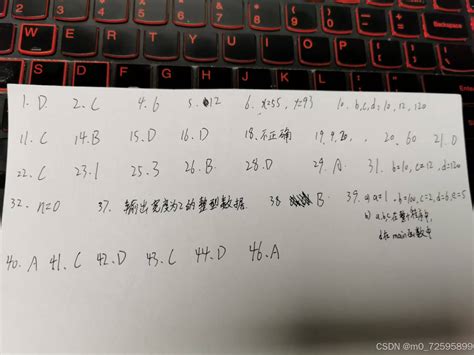 1. D 2. C 4. 6 5. 12 6. x=55, y=93 10. b,c,d=10,12,120
11. C 14. B 15. D 16. D 18. 不正确 19. 9,20, 20. 60 21. D
22. C 23. 1 25. 3 26. B 28. D 29. A 31. b=10, c=12, d=120
32. n=0 37. 输出宽度为2的整型数据 38 B 39. a=1, b=100, c=2, d=6, e=5
a,b,c在整个程序中,
d在main函数中
40. A 41. C 42. D 43. C 44. D 46. A
CSDN @m0_72595899